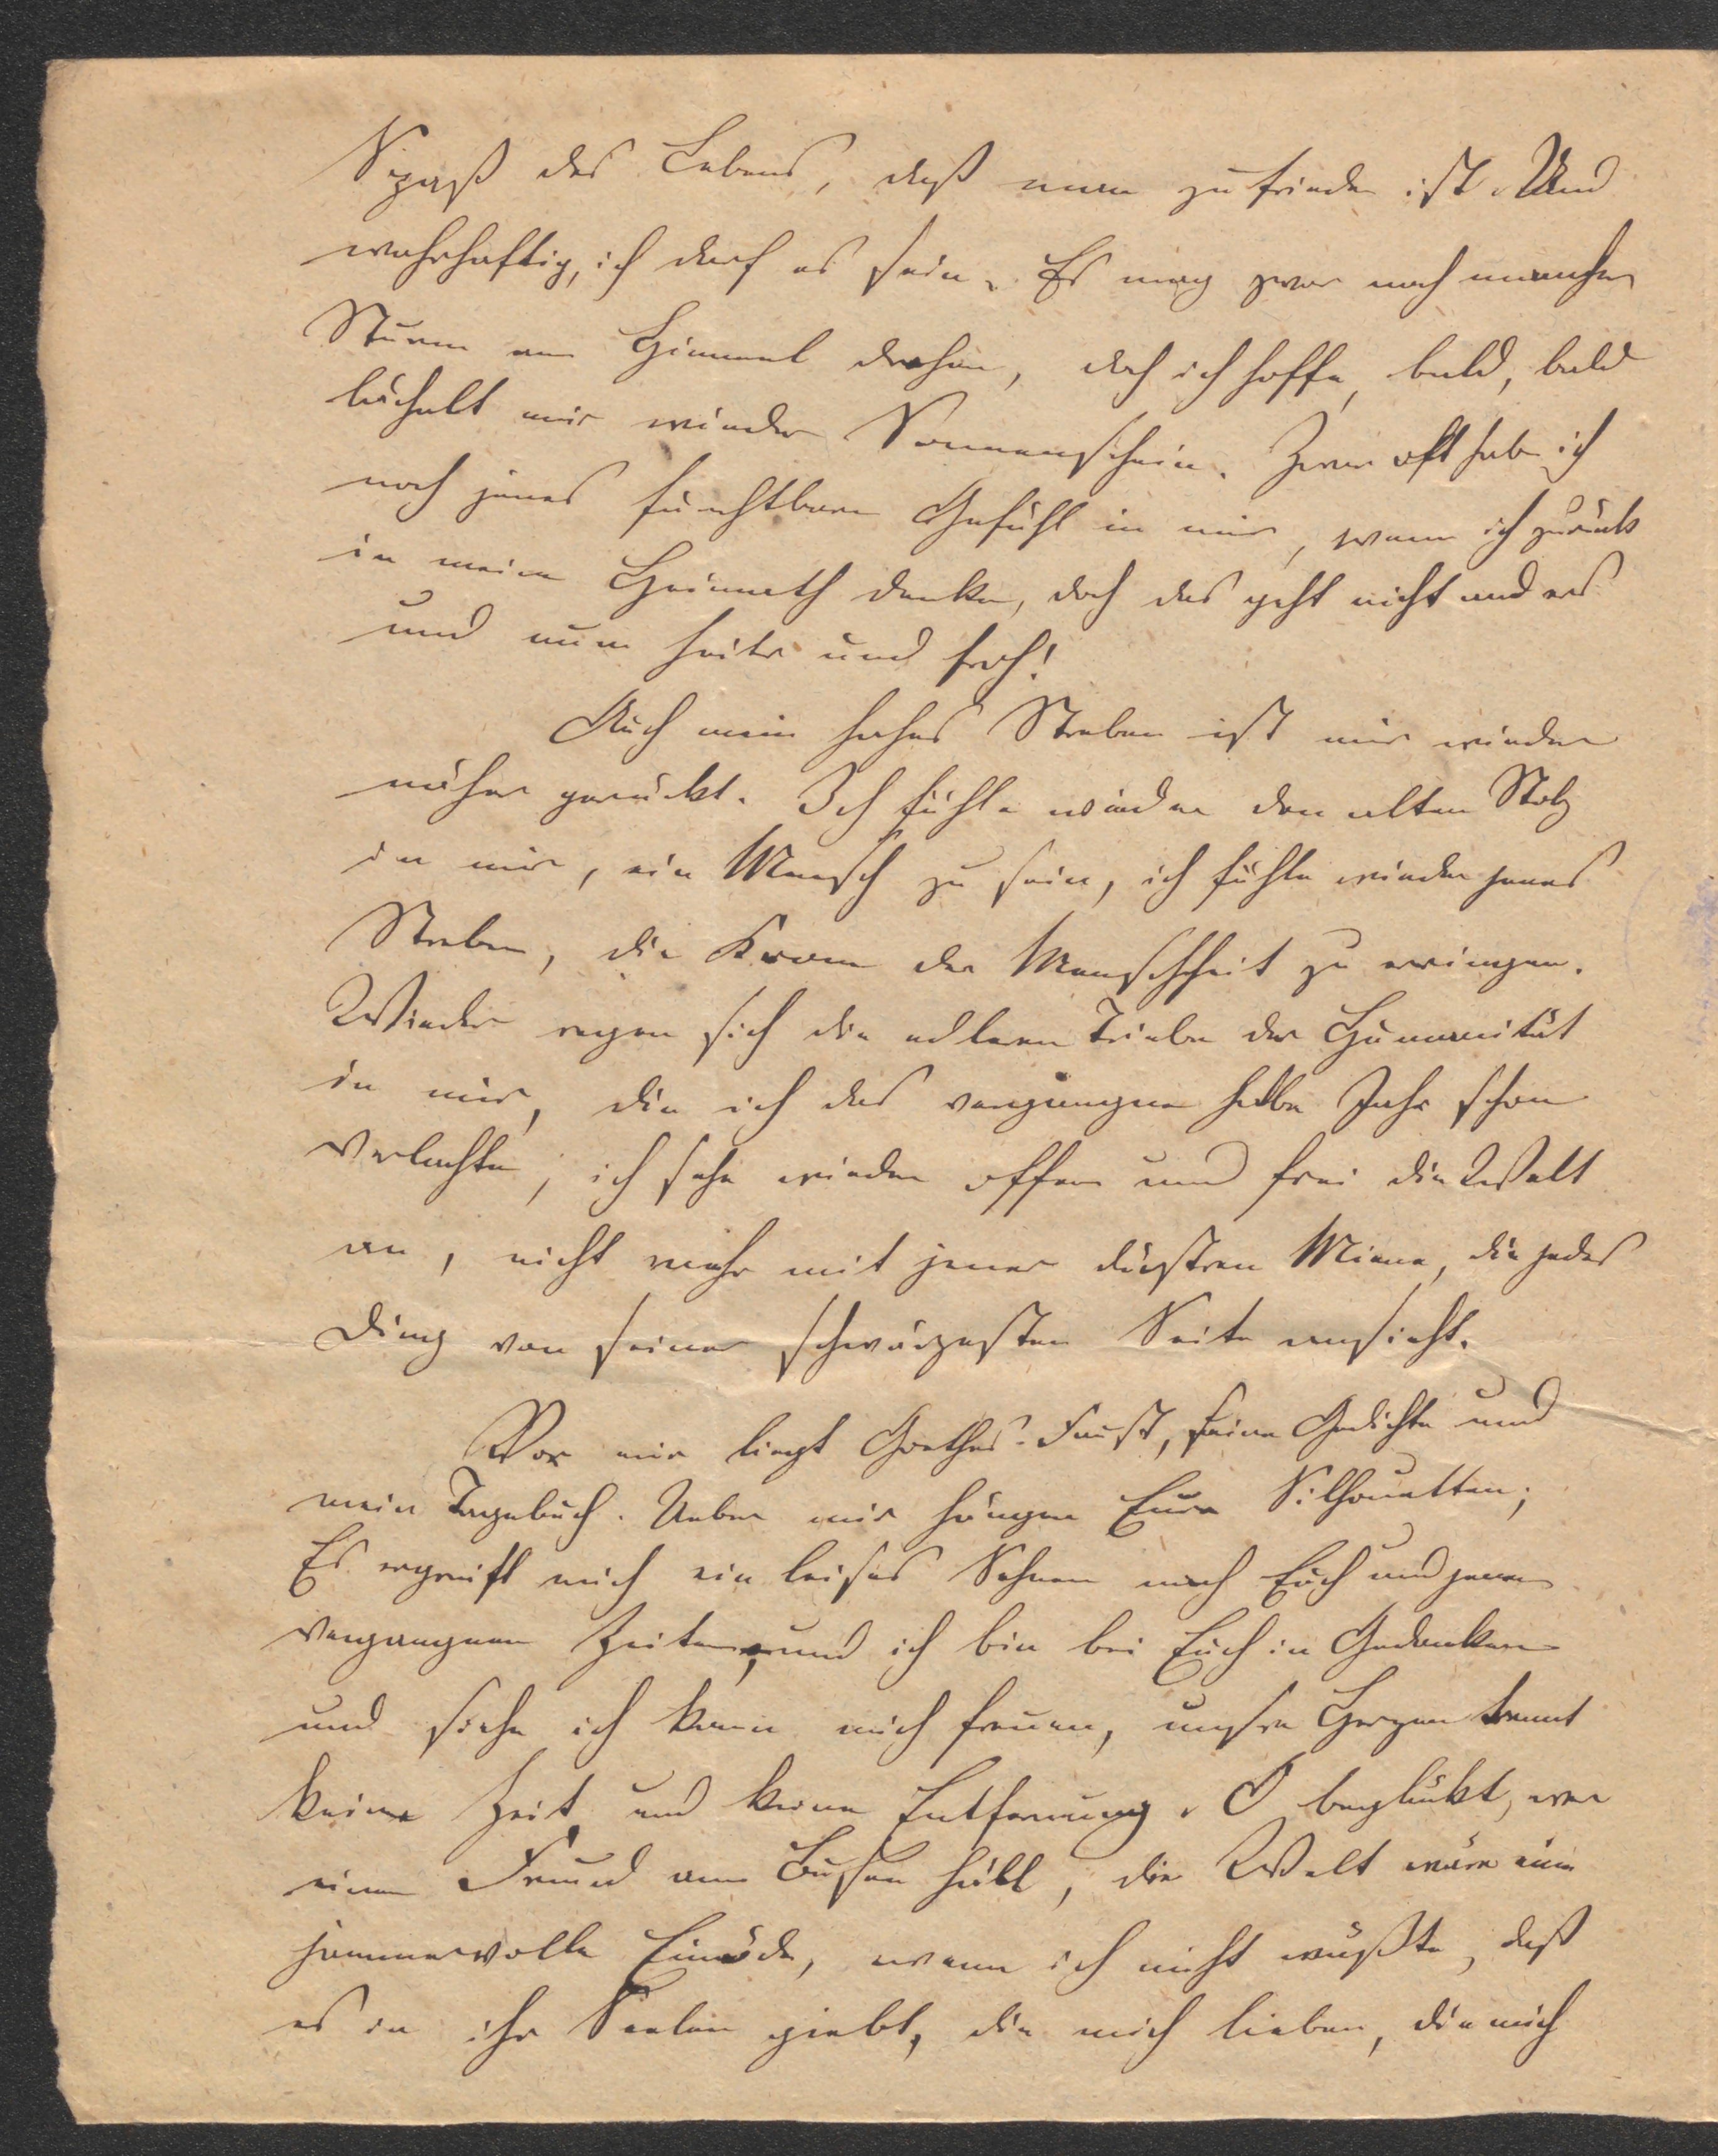 Spaß des Lebens, daß man zufrieden ist. Und
wahrhaftig, ich darf es sein. Es mag zwar noch mancher
Sturm am Himmel drohen, doch ich hoffe, bald, bald
lächelt mir wieder Sonnenschein. Zwar oft habe ich
noch jenes furchtbare Gefühl in mir, wenn ich zurück
in meine Heimath denke, doch das geht nicht anders
und nun heiter und froh!
Auch mein hohes Streben ist mir wieder
näher gerückt. Ich fühle wieder den alten Stolz
in mir, ein Mensch zu sein, ich fühle wieder jenes
Streben, die Krone der Menschheit zu erringen.
Wieder regen sich die edleren Triebe der Humanität
in mir, die ich das vergangne halbe Jahr schon
verlachte, ich sehe wieder offen und frei die Welt
an, nicht mehr mit jener düstren Miene, die jedes
Ding von seiner schwärzesten Seite ansieht.
Vor mir liegt Goethes Faust, seine Gedichte und
mein Tagebuch. Ueber mir hängen Eure Silhouetten;
Es ergreift mich ein leises Sehnen nach Euch und jenen
vergangnen Zeiten, und ich bin bei Euch in Gedanken
und siehe ich kann mich freuen, unsre Herzen trennt
keine Zeit und keine Entfernung. O beglückt, wer
einen Freund am Busen hält, die Welt wäre eine
jammervolle Einöde, wenn ich nicht wüßte, daß
es in ihr Seelen giebt, die mich lieben, die mich